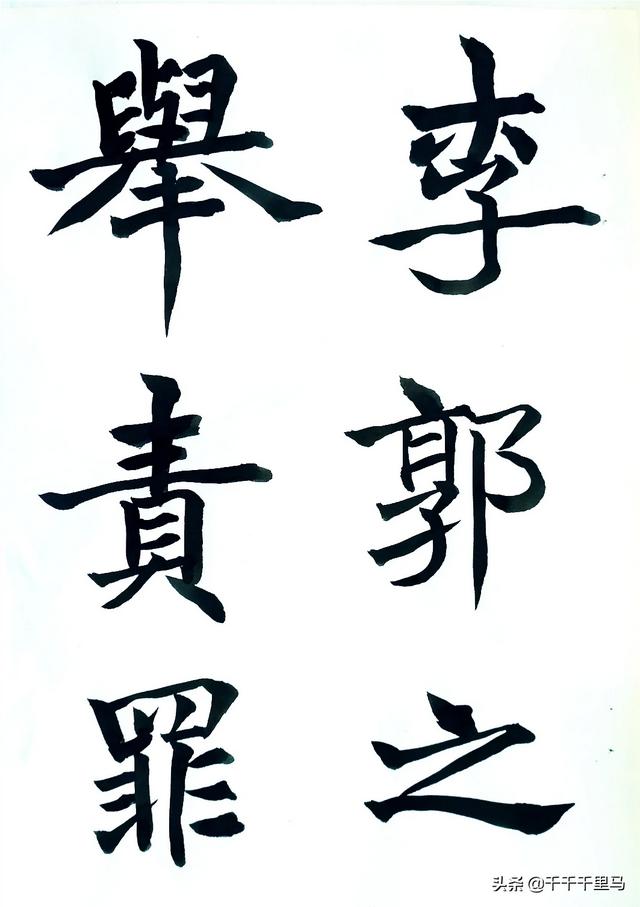 李郭之
舉責罪
头条 @千千千里马